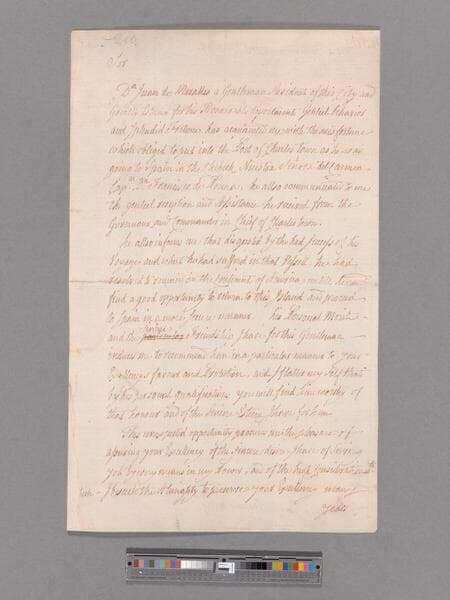 Sir
Dn. Juan de Miralles a Gentleman Resident of this City and
for his Personal genteel behavior
and Splendid Fortune has acquainted me with the misfortune
which obliged to put into the Port of Charles town as he was
going to Spain in the Nuestra Senora del Carmen
Capn. Dn. Francisco de he also communicated to me
the genteel reception and Assistance he received from the
Governour and Commander in Chief of Charlestown.
he also informs me that disgusted by the bad success of his
Voyage and what he had suffered in that Vessell he had
resolved to remain on the Continent of America untill he can
find a good opportunity to return to this Island and proceed
to Spain in a more manner. his Personal Merit
and the Friendship I have for this Gentleman
induces me to recommend him in a particular manner to your
Excellencys favour and Protection, and I flatter my Self that
by his personal qualifications you will find him worthy of
that honour and of the Sincere Esteem I have for him.
This opportunity procures me the pleasure of
assuring your Excellency of the Sincere desire I have of serving
you and of the high Consideration with
which I beseech the Almighty to preserve your Excellency many
Years